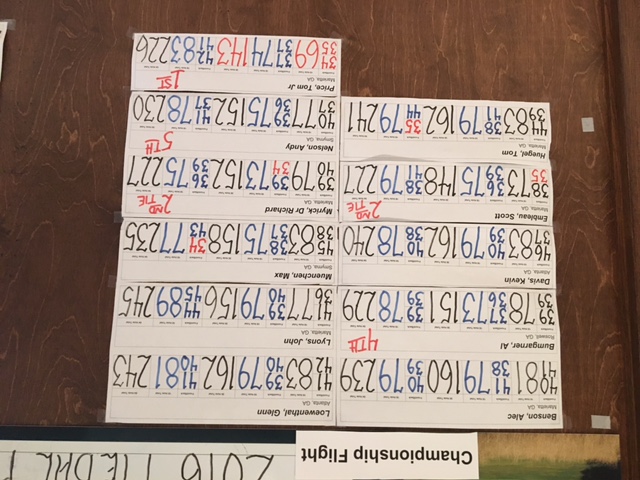 Championship Flight
2016 MEDAL P
Benson, Alec
Marietta, GA
40 41 81 41 38 79 160 40 39 79 239
Bumgarner, Al
Roswell, GA
4TH
39 39 78 36 37 73 151 39 39 78 229
Davis, Kevin
Atlanta, GA
46 37 83 39 40 79 162 40 38 78 240
Embleau, Scott
Marietta, GA
2ND TIE
38 35 73 36 39 75 148 41 38 79 227
Huegel, Tom
Marietta, GA
44 39 83 38 41 79 162 35 44 79 241
Loewenthal, Glenn
Atlanta, GA
41 42 83 39 40 79 162 41 40 81 243
Lyons, John
Marietta, GA
36 41 77 39 40 79 156 44 45 89 245
Muenchen, Max
Smyrna, GA
45 38 83 38 37 75 158 34 43 77 235
Myrick, Dr Richard
Marietta, GA
2ND TIE
39 40 79 39 34 73 152 36 39 75 227
Nelson, Andy
Smyrna, GA
5TH
40 37 77 36 39 75 152 41 37 78 230
Price, Tom Jr
Marietta, GA
1ST
34 35 69 37 37 74 143 42 41 83 226